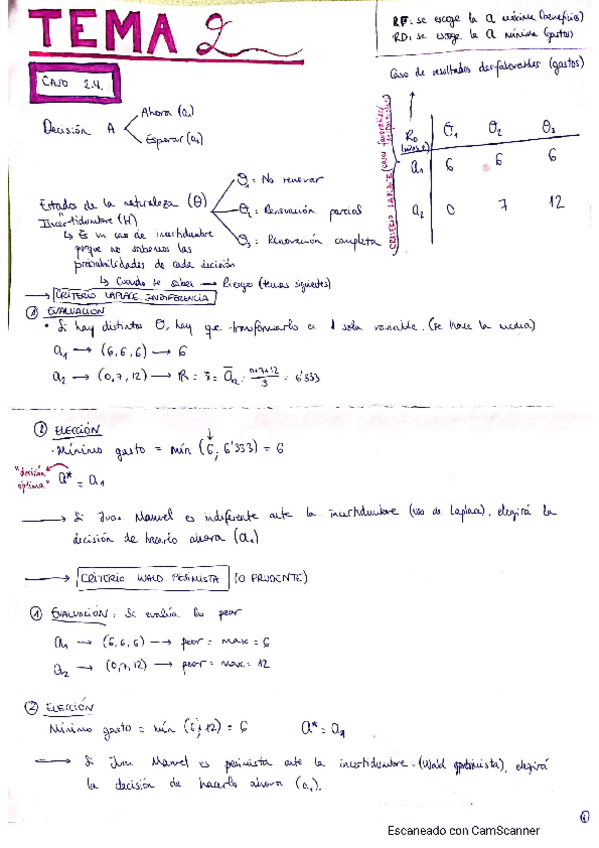 TEMA 2
RF: se escoge la a máxima (beneficio)
RD: se escoge la a mínima (gastos)
CASO 2.4.
Caso de resultados desfavorables (gastos)
Decisión A
Ahora (a₁)
Esperar (a₂)
RD
θ₁ θ₂ θ₃
a₁ 6 6 6
a₂ 0 7 12
CRITERIO LAPLACE
Estados de la naturaleza (θ)
θ₁ = No renovar
θ₂ = Renovación parcial
θ₃ = Renovación completa
Incertidumbre (H)
↳ Es un caso de incertidumbre
porque no sabemos las
probabilidades de cada decisión
↳ Cuando se saben → Riesgo (temas siguientes)
→ CRITERIO LAPLACE INDIFERENCIA
① EVALUACIÓN
• Si hay distintos θ, hay que transformarlo en 1 sola variable. (Se hace la media)
a₁ → (6,6,6) → 6
a₂ → (0,7,12) → R = = a̅₂ = 0+7+12/3 = 6'333
② ELECCIÓN
· Mínimo gasto = mín (6, 6'333) = 6
"decisión óptima" a* = a₁
→ Si Juan Manuel es indiferente ante la incertidumbre (uso de Laplace), elegirá la
decisión de hacerlo ahora (a₁)
→ CRITERIO WALD PESIMISTA (O PRUDENTE)
① EVALUACIÓN: Se evalúa lo peor
a₁ → (6,6,6) → peor = max = 6
a₂ → (0,7,12) → peor = max = 12
② ELECCIÓN
Mínimo gasto = mín (6,12) = 6 a* = a₁
→ Si Juan Manuel es pesimista ante la incertidumbre (Wald pesimista), elegirá
la decisión de hacerlo ahora (a₁).
①
Escaneado con CamScanner